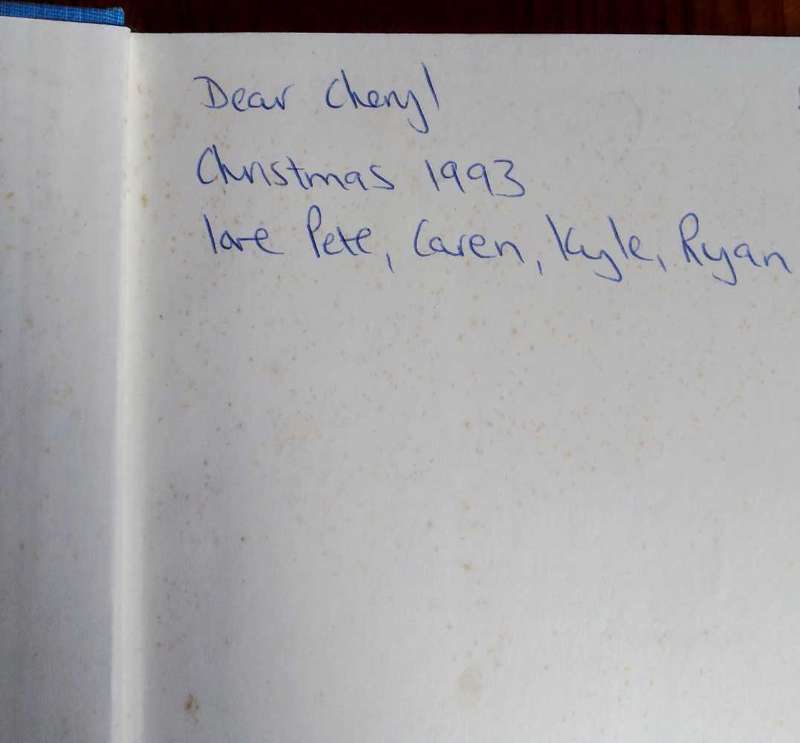 Dear Cheryl
Christmas 1993
love Pete, Caren, Kyle, Ryan